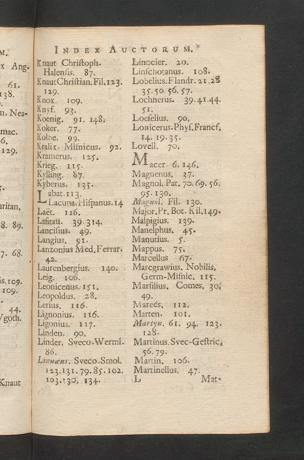 INDEX AUCTORUM.
Knaut Christoph.
Halensis. 87.
Knaut Christian. Fil. 123.
129.
Knox. 109.
Knyf. 93.
Koenig. 91. 148.
Koker. 77.
Kolbe. 99.
Kramerus. 125.
Krieg. 115.
Kylling. 87.
Kyberus. 135.
Labat. 113.
Lacuna. Hispanus. 14
Laet. 116.
Lafitau. 39. 314.
Lancisius. 49.
Langius. 91.
Lanzonius Med. Ferrar.
42.
Laurenbergius. 140.
Leig. 106.
Leonicenus. 151.
Leopoldus. 28.
Lerius. 116.
Lignonius. 116.
Ligonius. 117.
Linden. 90.
Linder. Sveco-Werml.
86.
Linnæus. Sveco-Smol.
123. 131. 79. 85. 102.
103. 130. 134.
Linocier. 20.
Linschotanus. 108.
Lobelius. Flandr. 21. 28
35. 50. 56. 57.
Lochnerus. 39. 41. 44.
51.
Loeselius. 90.
Lonicerus. Phys. Francf.
14. 19. 35.
Lovell. 70.
Macer. 6. 146.
Magnenus. 37.
Magnol. Pat. 70. 69. 56.
95. 130.
Magnol. Fil. 130.
Major. Pr. Bot. Kil. 149.
Malpigius. 139.
Manelphus. 45.
Manutius. 5.
Mappus. 75.
Marcellus. 67.
Marcgravius. Nobilis.
Germ-Misnic. 115.
Marsilius. Comes. 30.
49.
Mareds. 112.
Marten. 101.
Martyn. 61. 94. 123.
128.
Martinus. Svec-Gestric.
56. 79.
Martin. 106.
Martinellus. 47.
L Mat-
Knaut